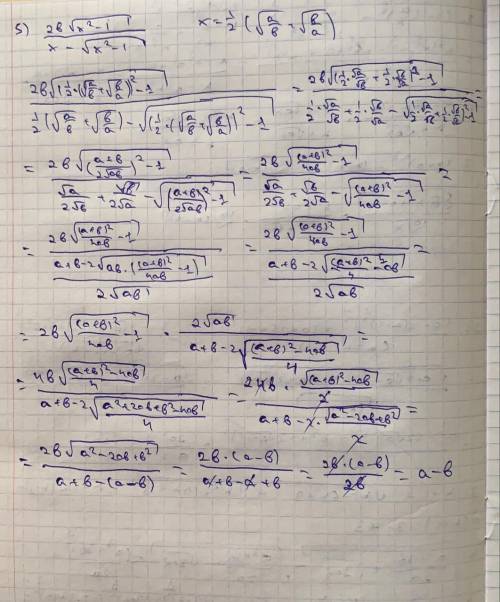 5) 2b√(x²-1) / (x - √(x²-1))    x = 1/2 (√(a/b) + √(b/a))
2b√((1/2·(√(a/b) + √(b/a)))² - 1) / (1/2(√(a/b) + √(b/a)) - √((1/2·(√(a/b) + √(b/a)))² - 1)) = 2b√((1/2·√a/√b + 1/2·√b/√a)² - 1) / (1/2·√a/√b + 1/2·√b/√a - √((1/2·√a/√b + 1/2·√b/√a)² - 1)) =
= 2b√(((a+b)/(2√ab))² - 1) / (√a/(2√b) + √b/(2√a) - √((a+b)²/(2√ab)² - 1)) = 2b√((a+b)²/(4ab) - 1) / (√a/(2√b) + √b/(2√a) - √((a+b)²/(4ab) - 1)) =
= 2b√((a+b)²/(4ab) - 1) / ((a+b-2√(ab·((a+b)²/(4ab) - 1))) / (2√ab)) = 2b√((a+b)²/(4ab) - 1) / ((a+b-2√((a+b)²/4 - ab)) / (2√ab)) =
= 2b√((a+b)²/(4ab) - 1) · 2√ab / (a+b-2√(((a+b)²-4ab)/4)) =
= 4b√(((a+b)²-4ab)/4) / (a+b-2√((a²+2ab+b²-4ab)/4)) = 2 4b · (√((a+b)²-4ab)/2) / (a+b-2·√(a²-2ab+b²)/2) =
= 2b√(a²-2ab+b²) / (a+b-(a-b)) = 2b·(a-b) / (a+b-a+b) = 2b·(a-b) / 2b = a-b